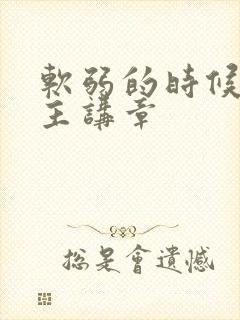 軟弱的時候
主講章
總是會遺憾